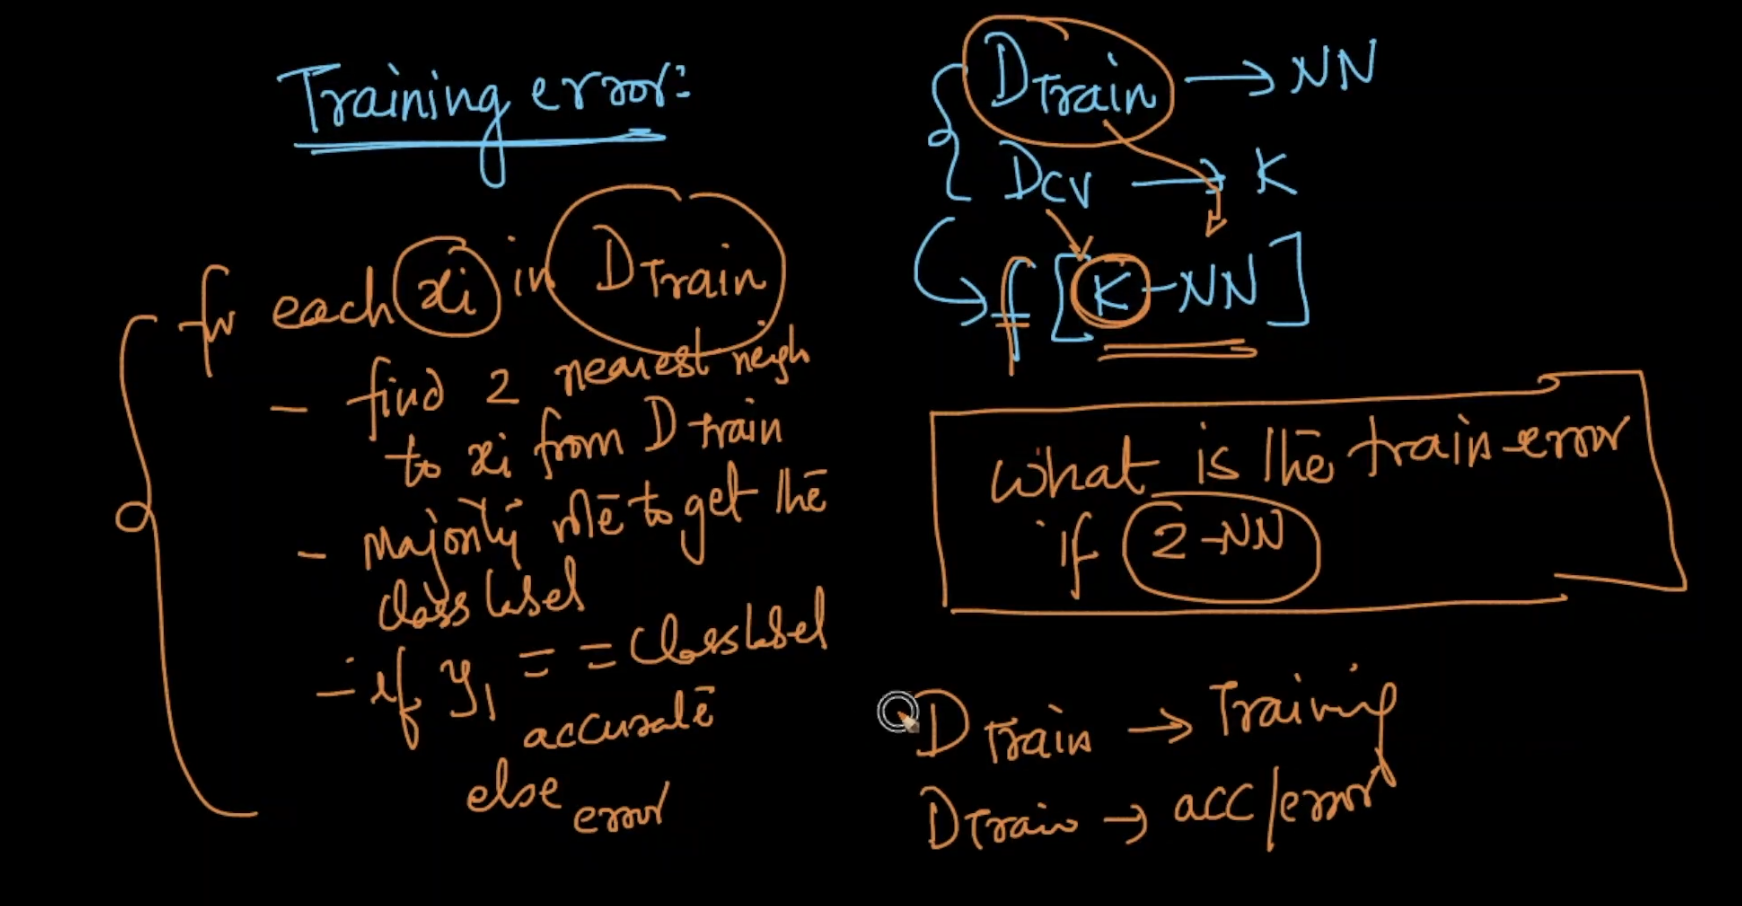 Training error:
for each xi in DTrain
- find 2 nearest neigh
to xi from D train
- Majority vote to get the
class label
- if y1 == Class label
accurate
else error
DTrain → NN
DCV → K
f[K-NN]
What is the train error
if 2-NN
DTrain → Training
DTrain → acc/error